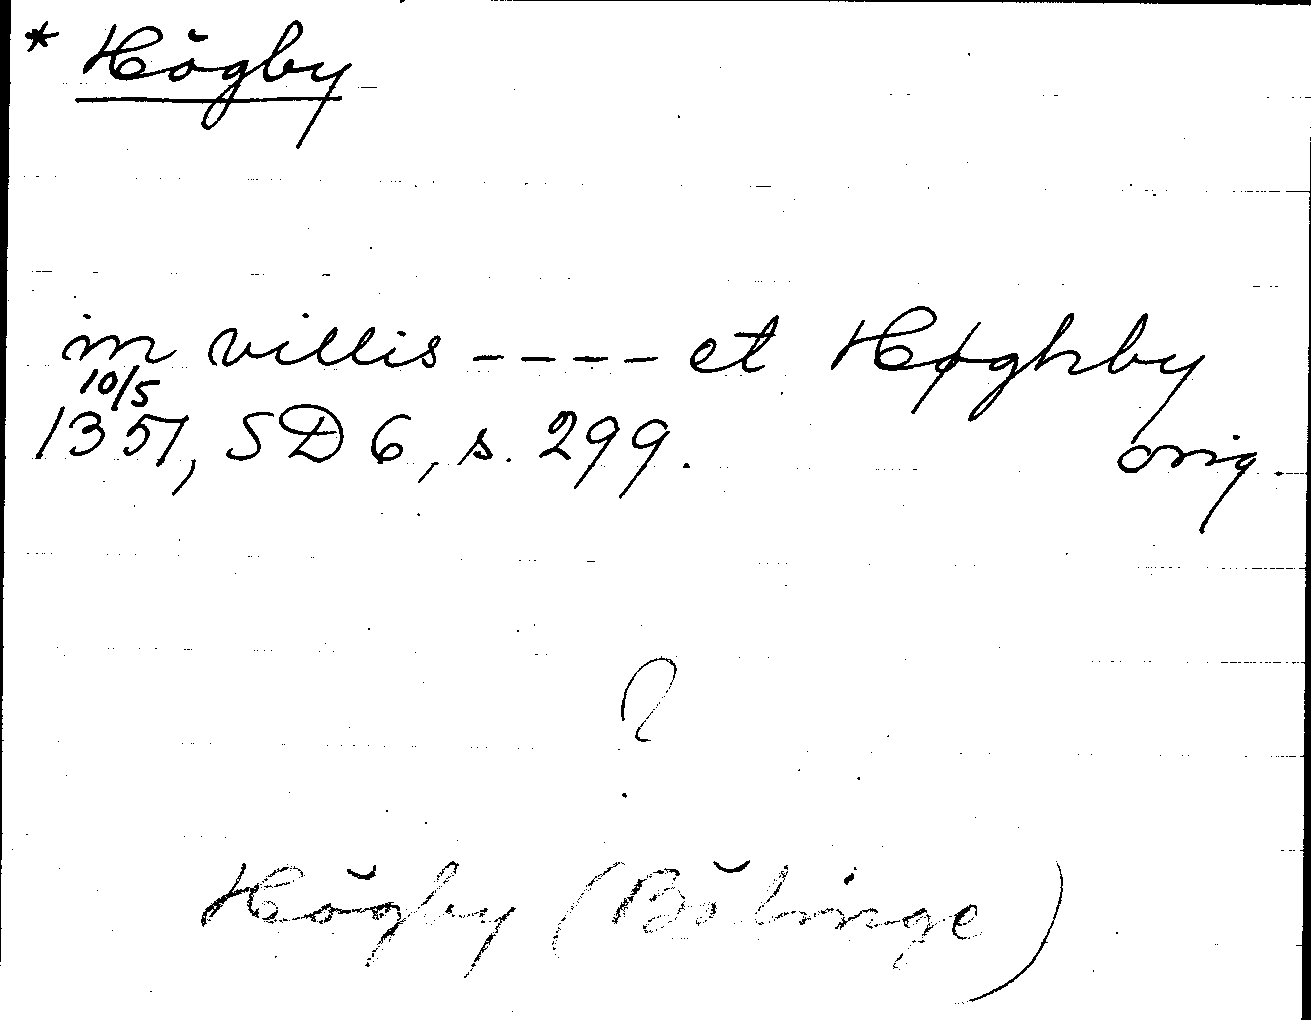 * Högby
in villis ---- et Høghby
10/5
1351, SD 6, s. 299. orig.
?
Högby (Bölinge)